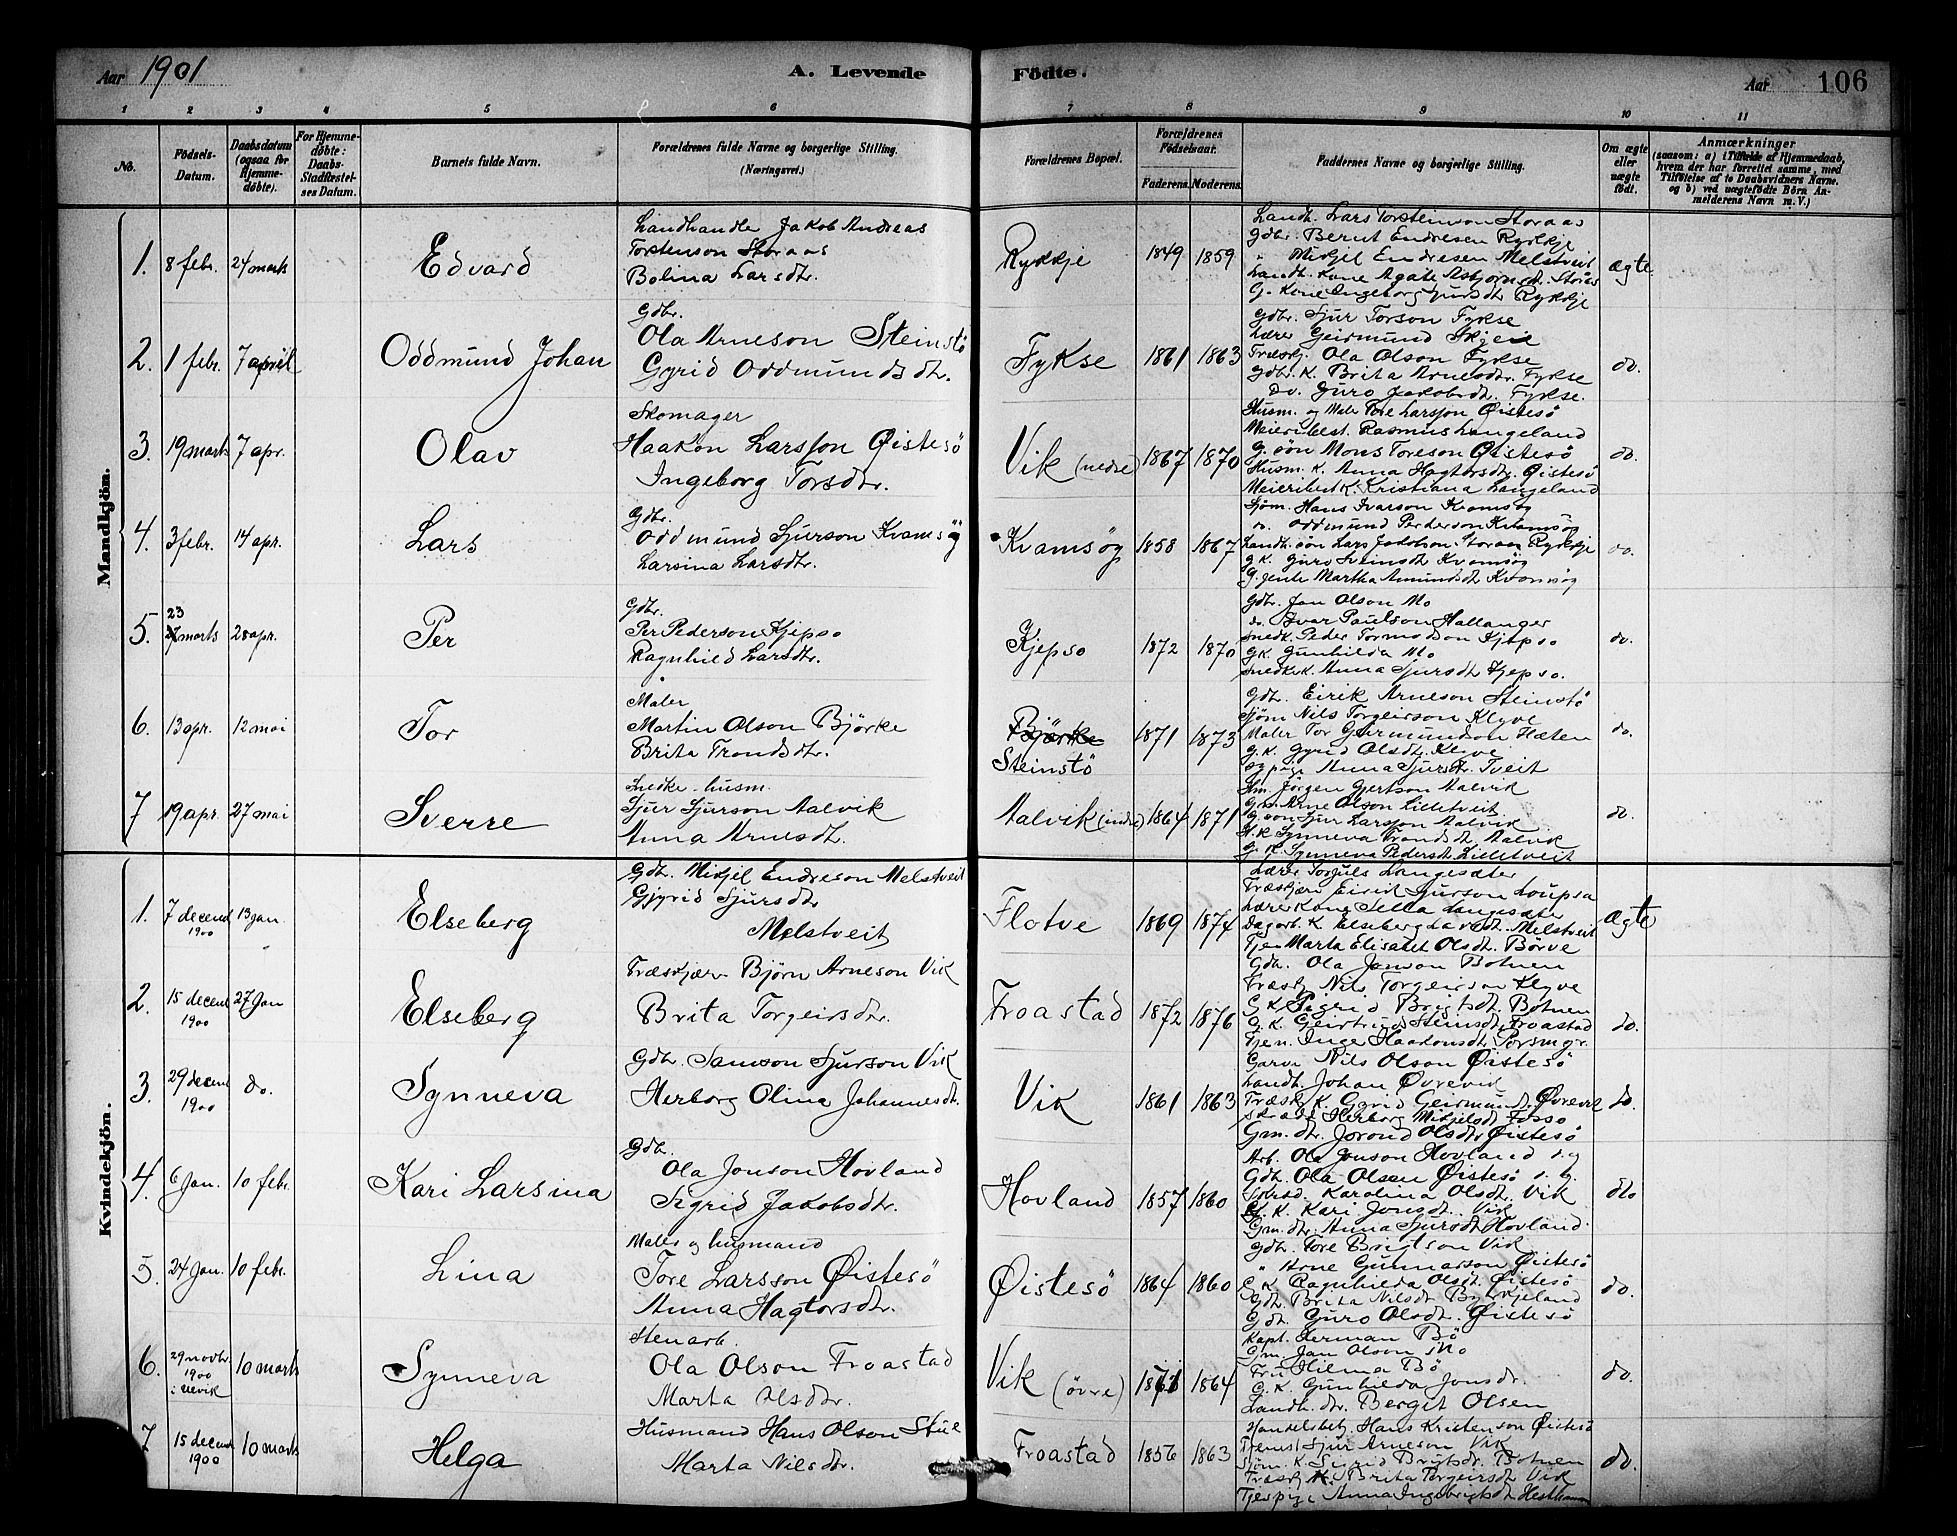 Aar 1901
A. Levende Födte.
Aar 106
1 2 3 4 5 6 7 8 9 10 11
No.
Födsels-Datum.
Daabsdatum (ogsaa for Hjemmedöbte).
For Hjemmedöbte: Daabs-Stadfæstelses Datum.
Barnets fulde Navn.
Forældrenes fulde Navne og borgerlige Stilling. (Næringsvei.)
Forældrenes Bopæl.
Forældrenes Födselsaar.
Faderens. Moderens.
Faddernes Navne og borgerlige Stilling.
Om ægte eller uægte födt.
Anmærkninger
(saasom: a) i Tilfælde af Hjemmedaab, hvem der har forrettet samme, med Tilföielse af to Daabsvidners Navne. og b) ved uægtefödte Börn Anmelderens Navn m. V.)
Mandkjön.
1. 8 febr. 24 marts Edvard
Landhandler Jakob Andreas
Torstenson Storaas
Bolina Larsdtr.
Rykkje 1849 1859
Landh. Lars Torsteinson Storaas
Gdbr. Bernt Endresen Rykkje
" Mikjel Endresen Melstveit
Landh. Kone Agate Asbjørnsdt. Storaas
G. Kone Ingeborg Sjursdtr Rykkje
ægte
2. 1 febr. 7 april Oddmund Johan
Gdbr.
Ola Arneson Steinstö
Gyrid Oddmundsdtr.
Fykse 1861 1863
Gdbr. Sjur Torson Fykse
Lærer Geirmund Skjeie
Træskj. Ola Olson Fykse
Gdbr. K. Brita Arnesdtr. Fykse
Do. Guro Jakobsdt. Fykse.
do.
3. 19 marts 7 apr. Olav
Skomager
Haakon Larsson Øistesö
Ingeborg Torsdtr.
Vik (nedre) 1867 1870
Husm. og Maler Tore Larsson Øistesö
Meieribest. Rasmus Langeland
G. sön Mons Toreson Øistesö
Husm. K. Anna Hagtorsdtr. Øistesö
Meieribest K. Kristiana Langeland
do.
4. 3 febr. 14 apr. Lars
Gdbr.
Oddmund Sjurson Kvamsög
Larsina Larsdtr.
Kvamsög 1858 1867
Sjöm. Hans Ivarson Kvamsög
do. Oddmund Pederson Kvamsög
Landh. sön Lars Jakobson Storaas Rykkje
G.K. Guro Sveinsdt Kvamsög
G. jente Martha Amundsdt Kvamsög
do.
5. 23 marts 28 apr. Per
Gdbr.
Per Pederson Kjepso
Ragnhild Larsdtr.
Kjepso 1872 1870
Gdbr. Jan Olson Mo
do. Ivar Paulson Hallanger
Snedk. Peder Tormodson Kjepso
G.K. Gunhilda Mo
Snedk. K. Anna Sjursdt Kjepso.
do.
6. 13 apr. 12 mai Tor
Maler
Martin Olson Björke
Brita Trondsdtr.
Björke
Steinstö 1871 1873
Gdbr. Eirik Arneson Steinstö
Sjöm Nils Torgeirson Klyve
Maler Tor Geirmundson Hæten
G.K. Gyrid Olsdt. Klyve
Sypige Anna Sjursdtr. Tveit
do.
7 19 apr. 27 mai Sverre
Snedker. husm.
Sjur Sjurson Aalvik
Anna Arnesdt.
Aalvik (indre) 1864 1871
Jörgen Gjertson Aalvik
Gm. Arne Olson Lilletveit
G. son Sjur Larsson Aalvik
H.K. Synneva Trondsdt Aalvik
G.K. Synneva Pedersdt Lilletveit
do.
Kvindekjön.
1. 7 decemb 1900 13 jan. Elseberg
Gdbr. Mikjel Endreson Melstveit
Gjyrid Sjursdtr
Melstveit
Flotve 1869 1874
Lærer Torgils Langesæter
Træskjær Eirik Sjurson Soupsa
Lærer Kone Sella Langesæter
Dagarb. K. Elseberg Larsdt. Melstveit
Tjen Marta Elisabet Olsdt. Börve
ægte
2. 15 decemb 1900 27 Jan Elseberg
Træskjær Björn Arneson Vik
Brita Torgeirsdtr.
Froastad 1872 1876
Gdbr. Ola Janson Botnen
Træskj Nils Torgeirson Klyve
G.K. Sigrid Brigtsdt. Botnen
G.K. Geirtrud Steinsdt. Froastad
Tjen. Inge Haakonsdt. Porsmyr.
do.
3. 29 decemb 1900 do. Synneva
Gdbr. Samson Sjurson Vik
Herborg Olina Johannesdt.
Vik 1861 1863
Garver Nils Olson Øistesö
Landh. Johan Övrevik
Træskj. K. Gyrid Geirmundsd. Övrevik
Herborg Mikjelsdt Fosso
Gm. dtr. Jorond Olsdtr. Øistesö
do.
4. 6 Jan. 10 febr. Kari Larsina
Gdbr.
Ola Jonson Hovland
Sigrid Jakobsdtr.
Hovland 1857 1860
Arb. Ola Jonson Hovland
Gdbr. Ola Olsen Øistesö
Karolina Olsdt. Vik
G.K. Kari Jonsdt. Vik
Gm. dtr. Anna Sjursdt Hovland.
do
5. 24 Jan. 10 febr. Lina
Maler og husmand
Tore Larsson Øistesö
Anna Hagtorsdtr.
Øistesö 1864 1860
Gdbr. Tore Brigtson Vik
" Arne Gunnarson Øistesö
G.K. Ragnhilda Olsdt. Øistesö
Gdtr. Brita Nilsdt Byrkjeland
G.dt. Guro Olsdt. Øistesö
do.
6. 29 novbr. 1900 i Ulvik 10 marts Synneva
Stenarb.
Ola Olson Froastad
Marta Olsdtr.
Vik (övre) 1861 1864
Kapt. Herman Bö
Gm. Jan Olson Mo
Fru Hilma Bö
G.K. Gunhilda Jonsdt.
Landh. dtr. Bergit Olsen
do.
7 15 decemb 1900 10 marts Helga
Husmand Hans Olson Stue
Marta Nilsdtr.
Froastad 1856 1863
Handelsbetj. Hans Kristenson Øistesö
Tjenest Sjur Arneson Vik
Sjöm. K. Sigrid Brigtsdt. Botnen
Træskj. K. Brita Torgeirsdt Vik
Tjenpige Anna Ingebrigtsdt Hesthamar
do.